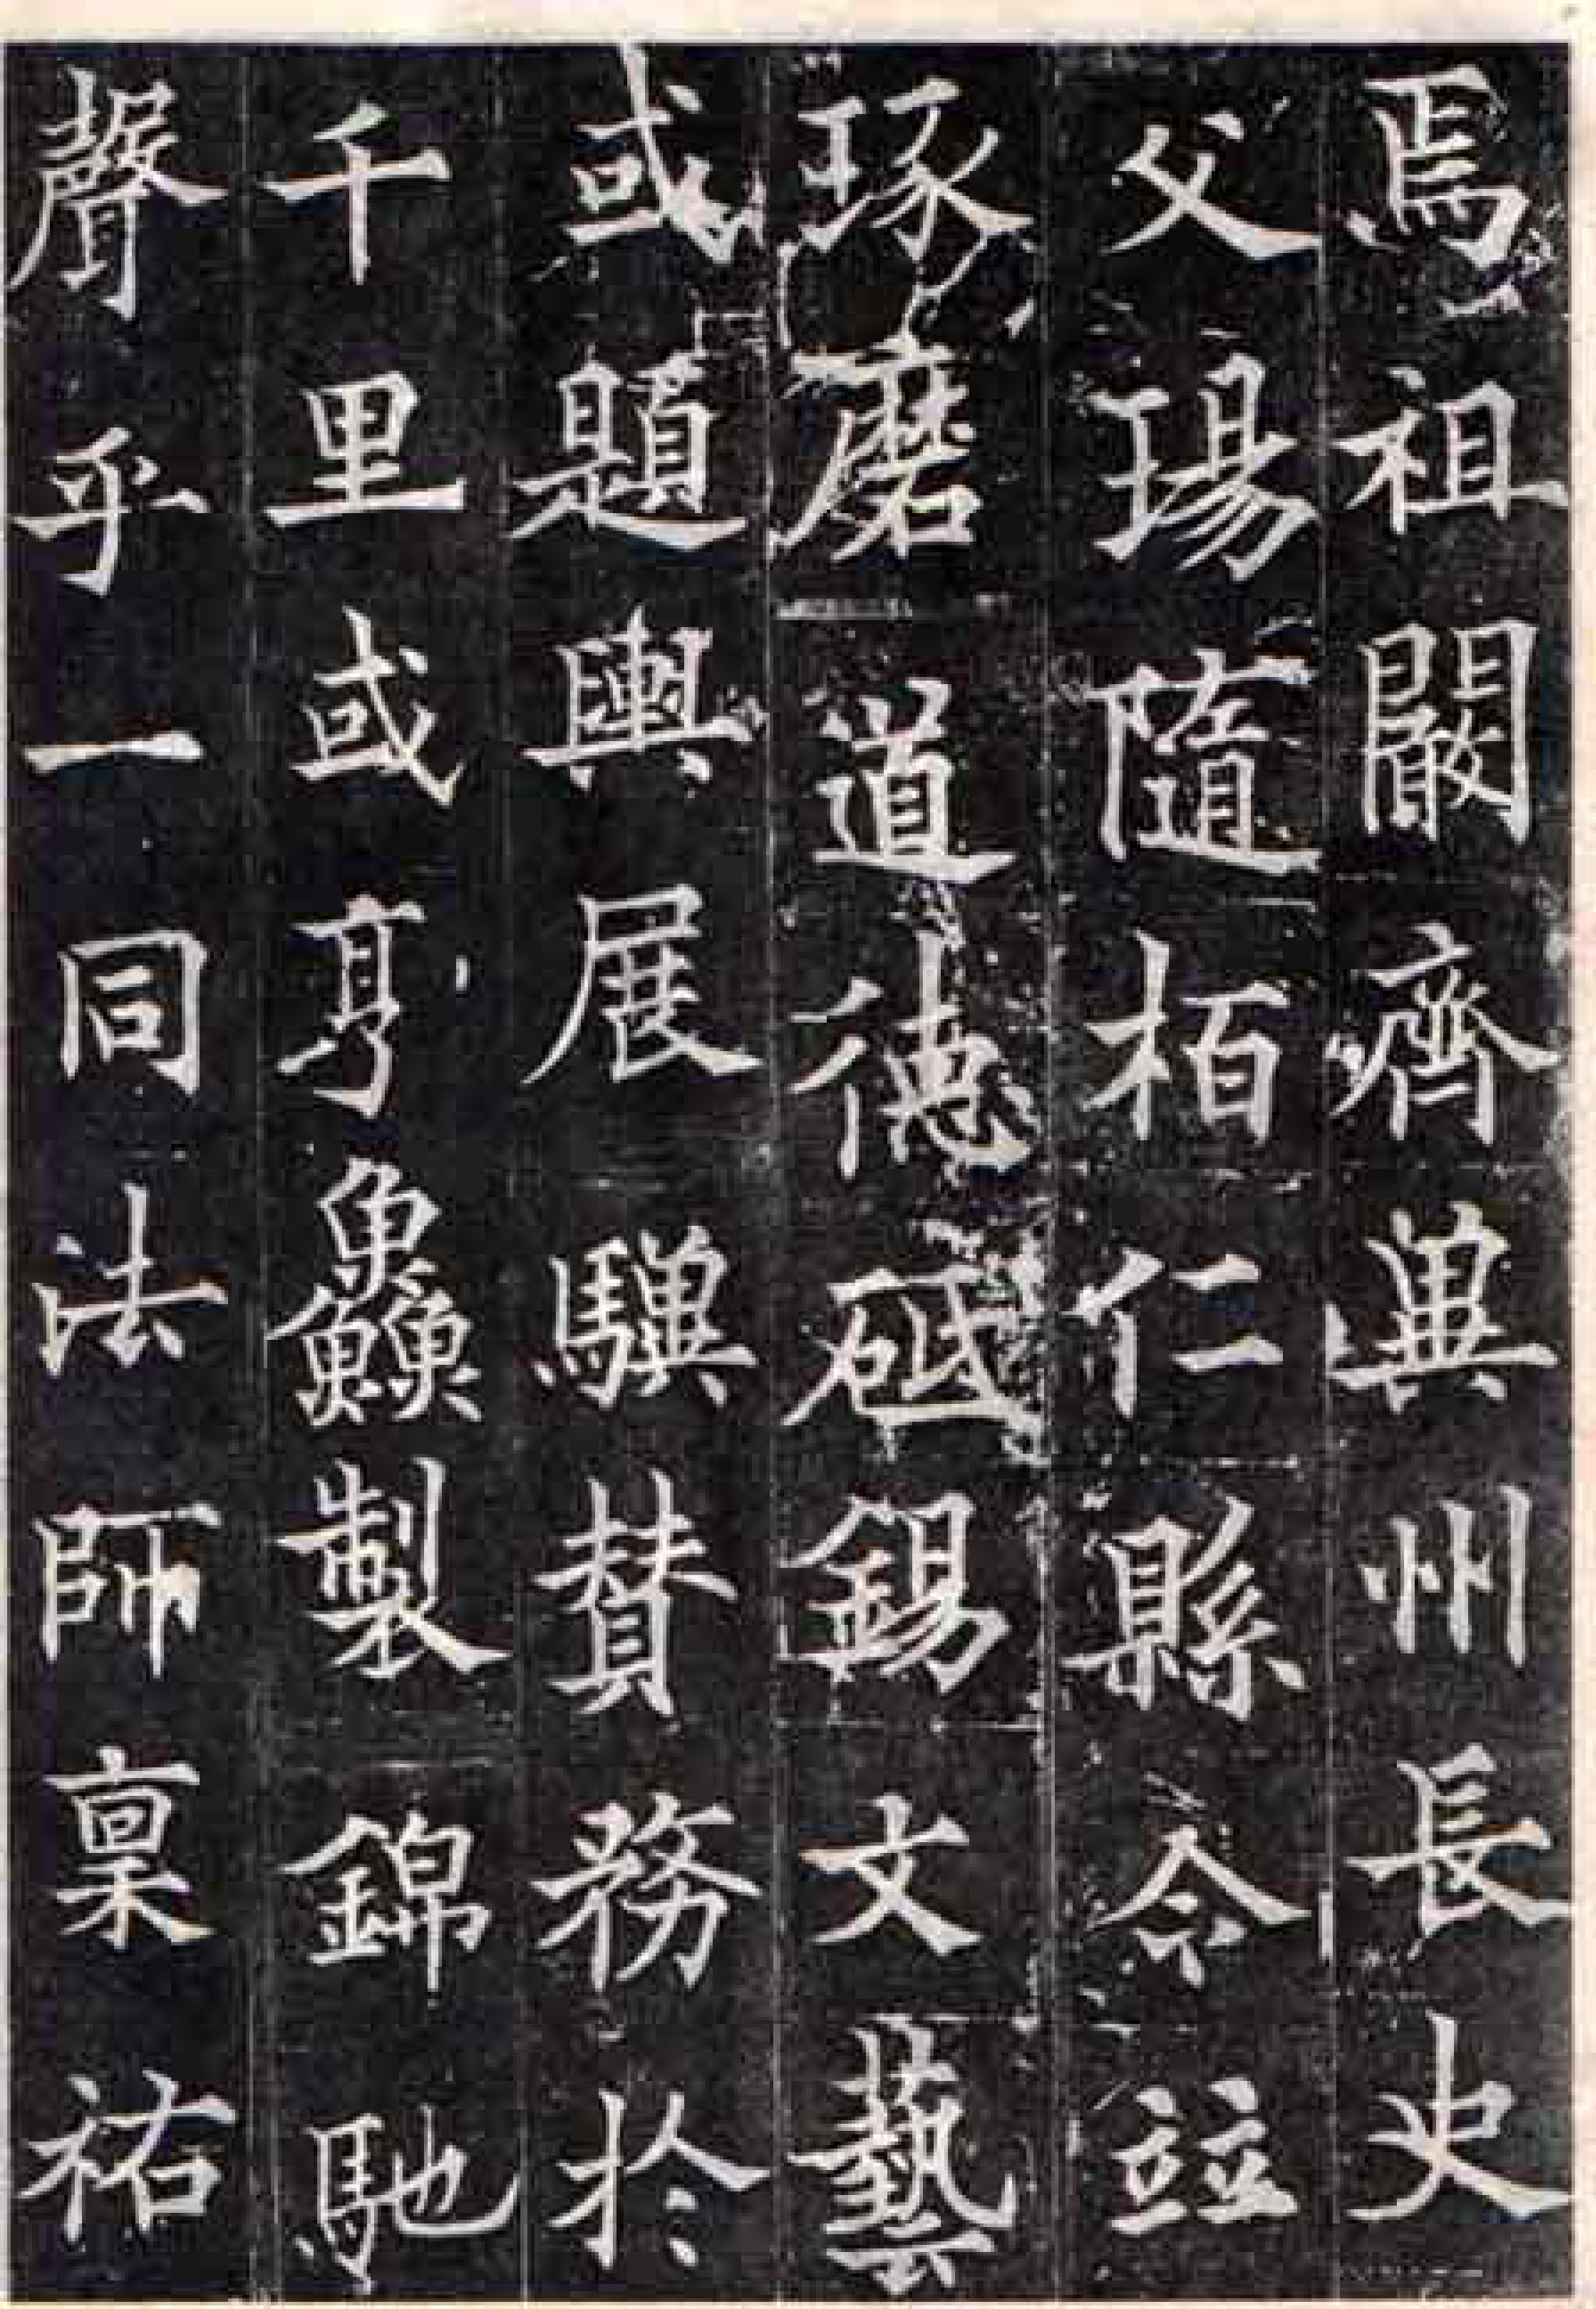 焉祖闞齊兾州長史
父瑒隨栢仁縣令竝
琢磨道德砥錫文藝
或題輿展驥賛務於
千里或亨鱻製錦馳
聲乎一同法師稟祐